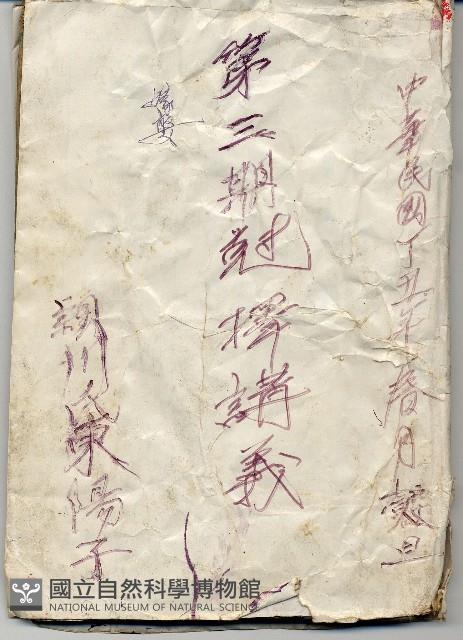 中華民國丁丑年春月穀旦
第三期剋擇講義
嫁娶
潁川氏陳陽子
國立自然科學博物館
NATIONAL MUSEUM OF NATURAL SCIENCE